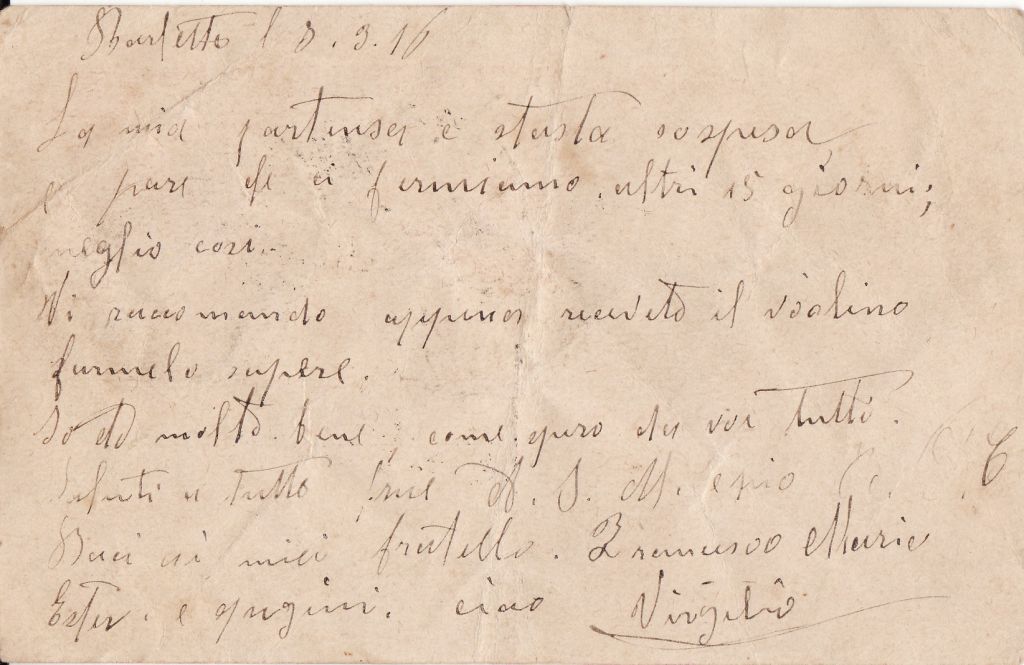 Barletta l 8.3.16
La mia partensa è stata sospesa
e pare che ci fermiamo altri 15 giorni;
meglio cosi.
Vi raccomando appena ricevuto il violino
farmelo sapere.
Io sto molto bene, come spero da voi tutto.
Saluti a tutto D. S. M. C
Baci ai miei fratello. Francesco Maria
Ester. e cugini. ciao Virgilio